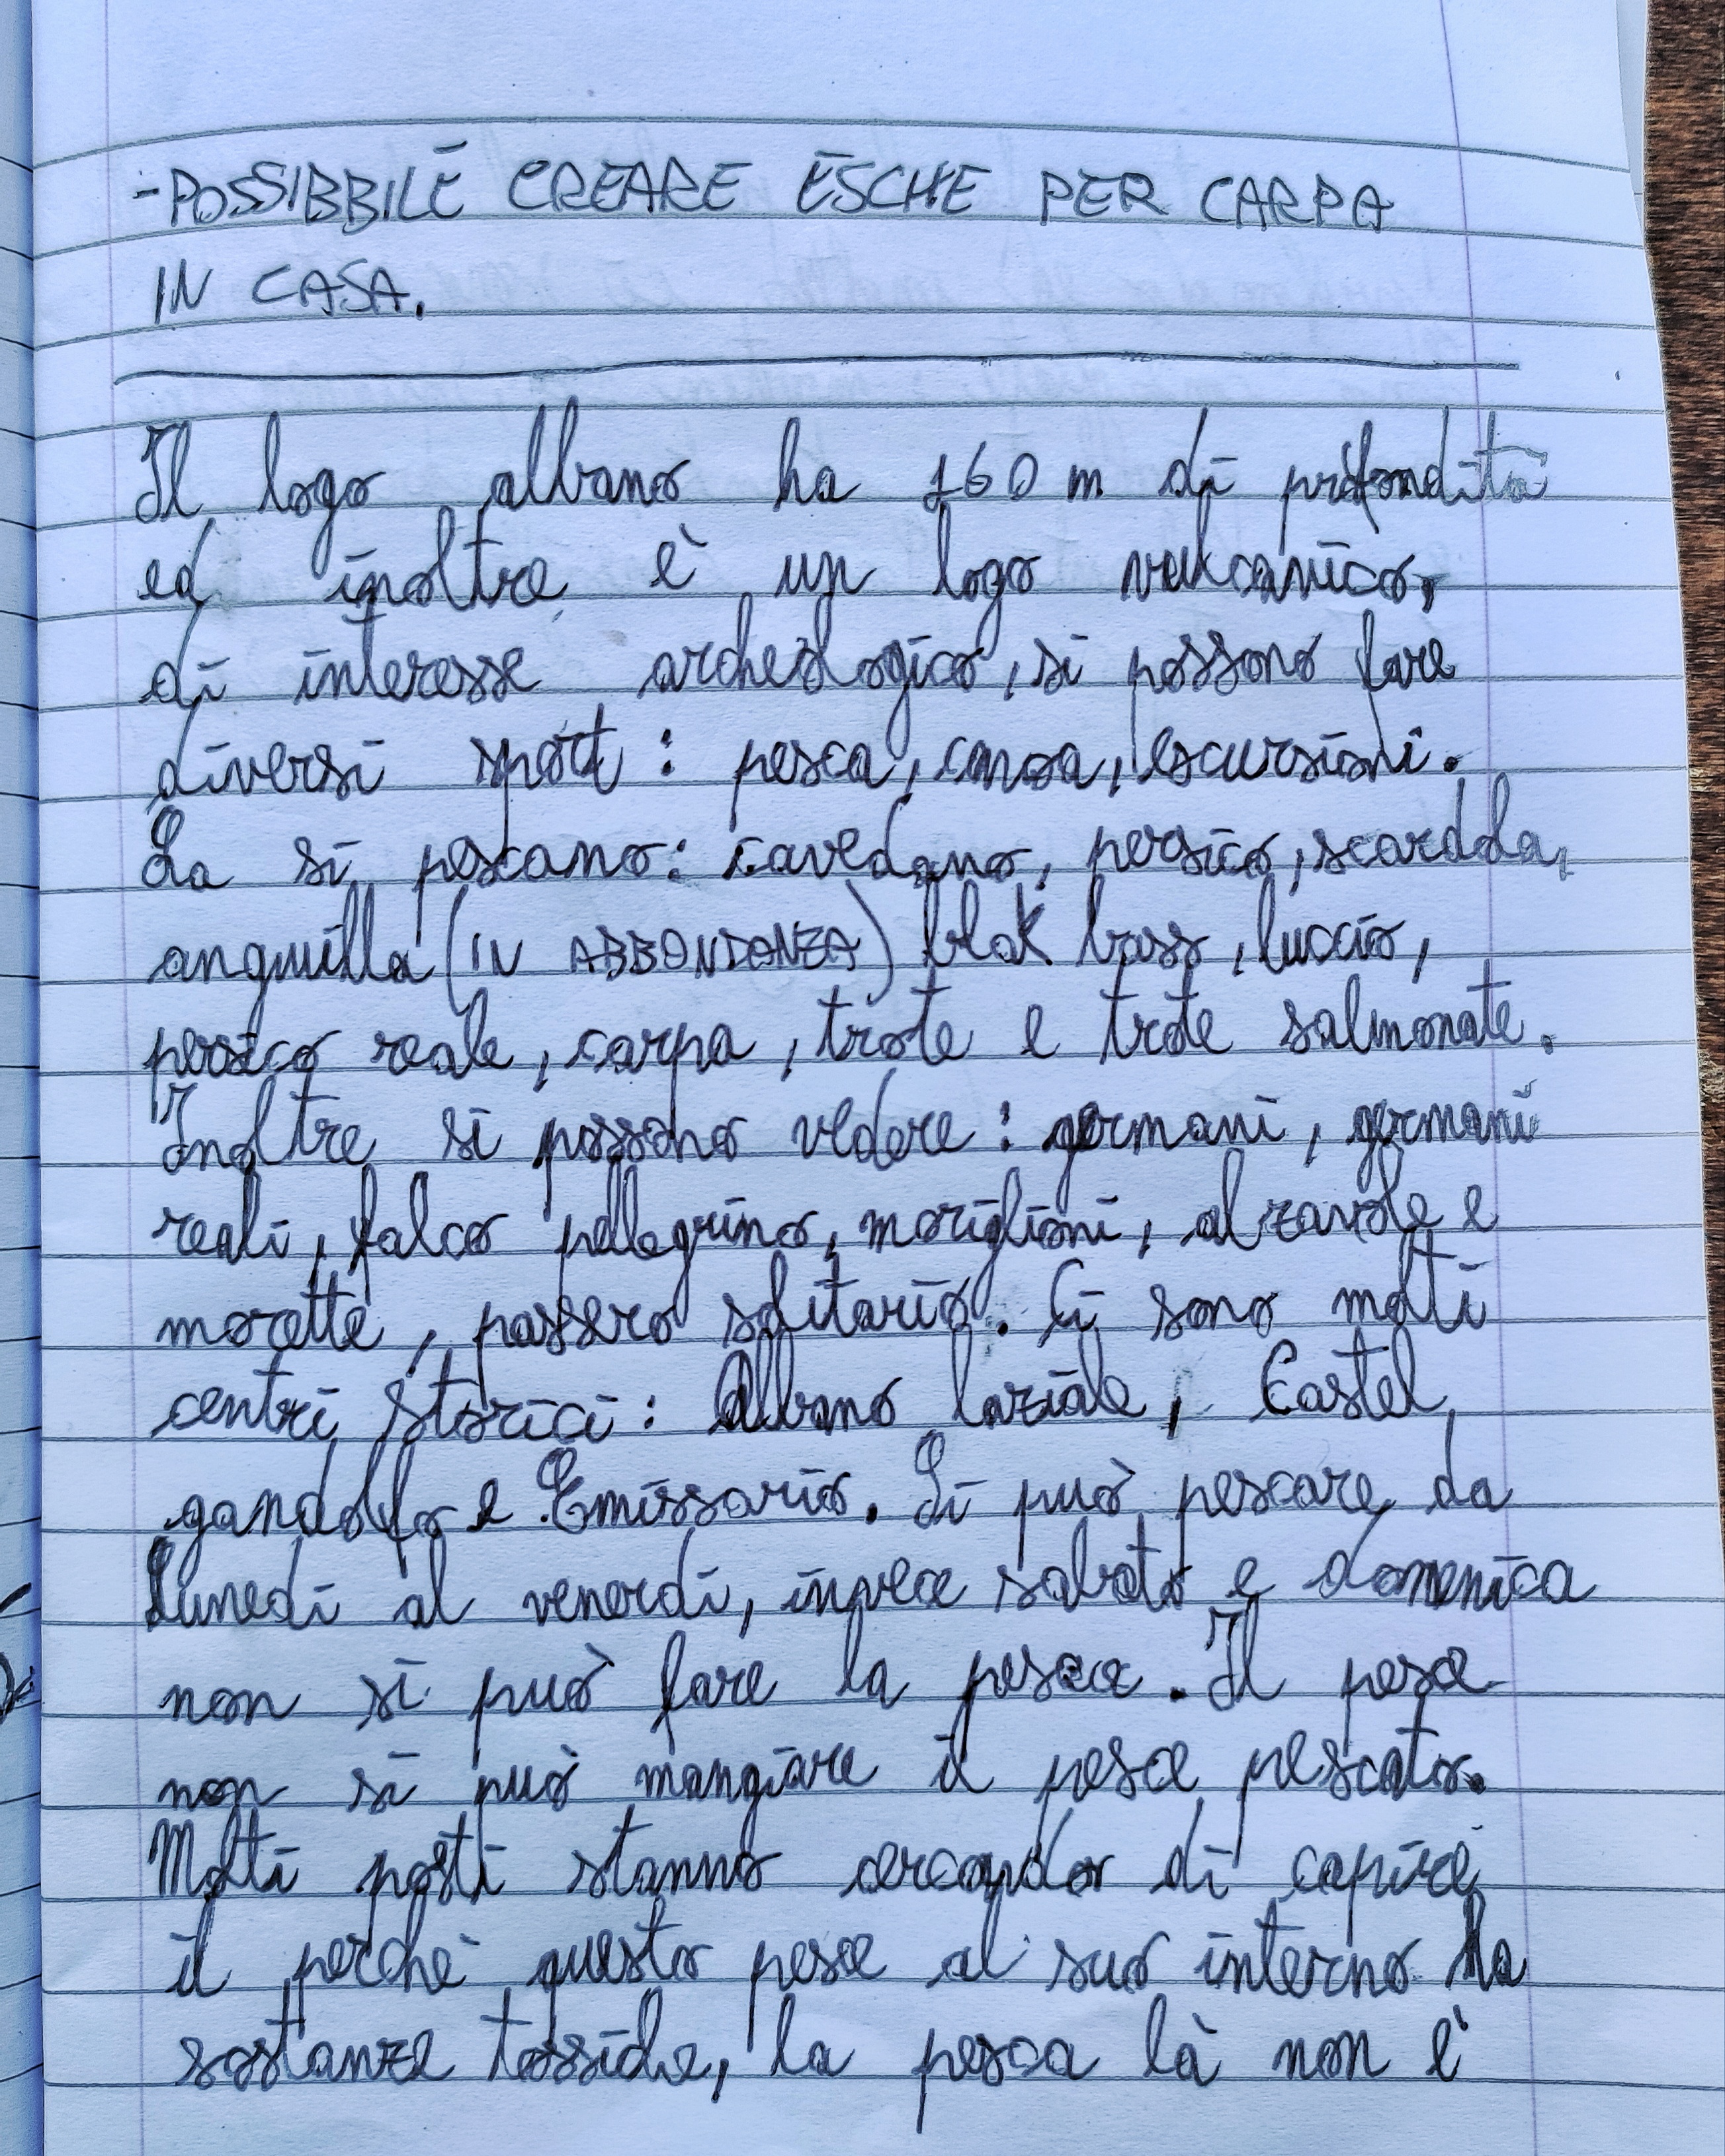 -POSSIBBILE CREARE ESCHE PER CARPA
IN CASA.
Il lago albano ha 160 m di profondità
ed inoltre è un lago vulcanico,
di interesse archeologico, si possono fare
diversi sport: pesca, canoa, escursioni.
La si pescano: cavedano, persico, scardola,
anguilla (IN ABBONDANZA) blak bass, luccio,
persico reale, carpa, trote e trote salmonate.
Inoltre si possono vedere: germani, germani
reali, falco pellegrino, moriglioni, alzavole e
morette, passero solitario. Ci sono molti
centri storici: Albano laziale, Castel
gandolfo e Emissario. Si può pescare da
Lunedì al venerdì, invece sabato e domenica
non si può fare la pesca. Il pesce
non si può mangiare il pesce pescato.
Molti posti stanno cercando di capire
il perchè questo pesce al suo interno ha
sostanze tossiche, la pesca là non è